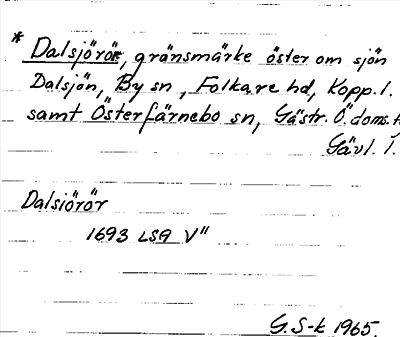 * Dalsjörör, gränsmärke öster om sjön
Dalsjön, By sn, Folkare hd, Kopp. l.
samt Österfärnebo sn, Gästr. Ö. doms.
Gävl. l.
Dalsiörör
1693 LSA V"
G.S-k 1965.